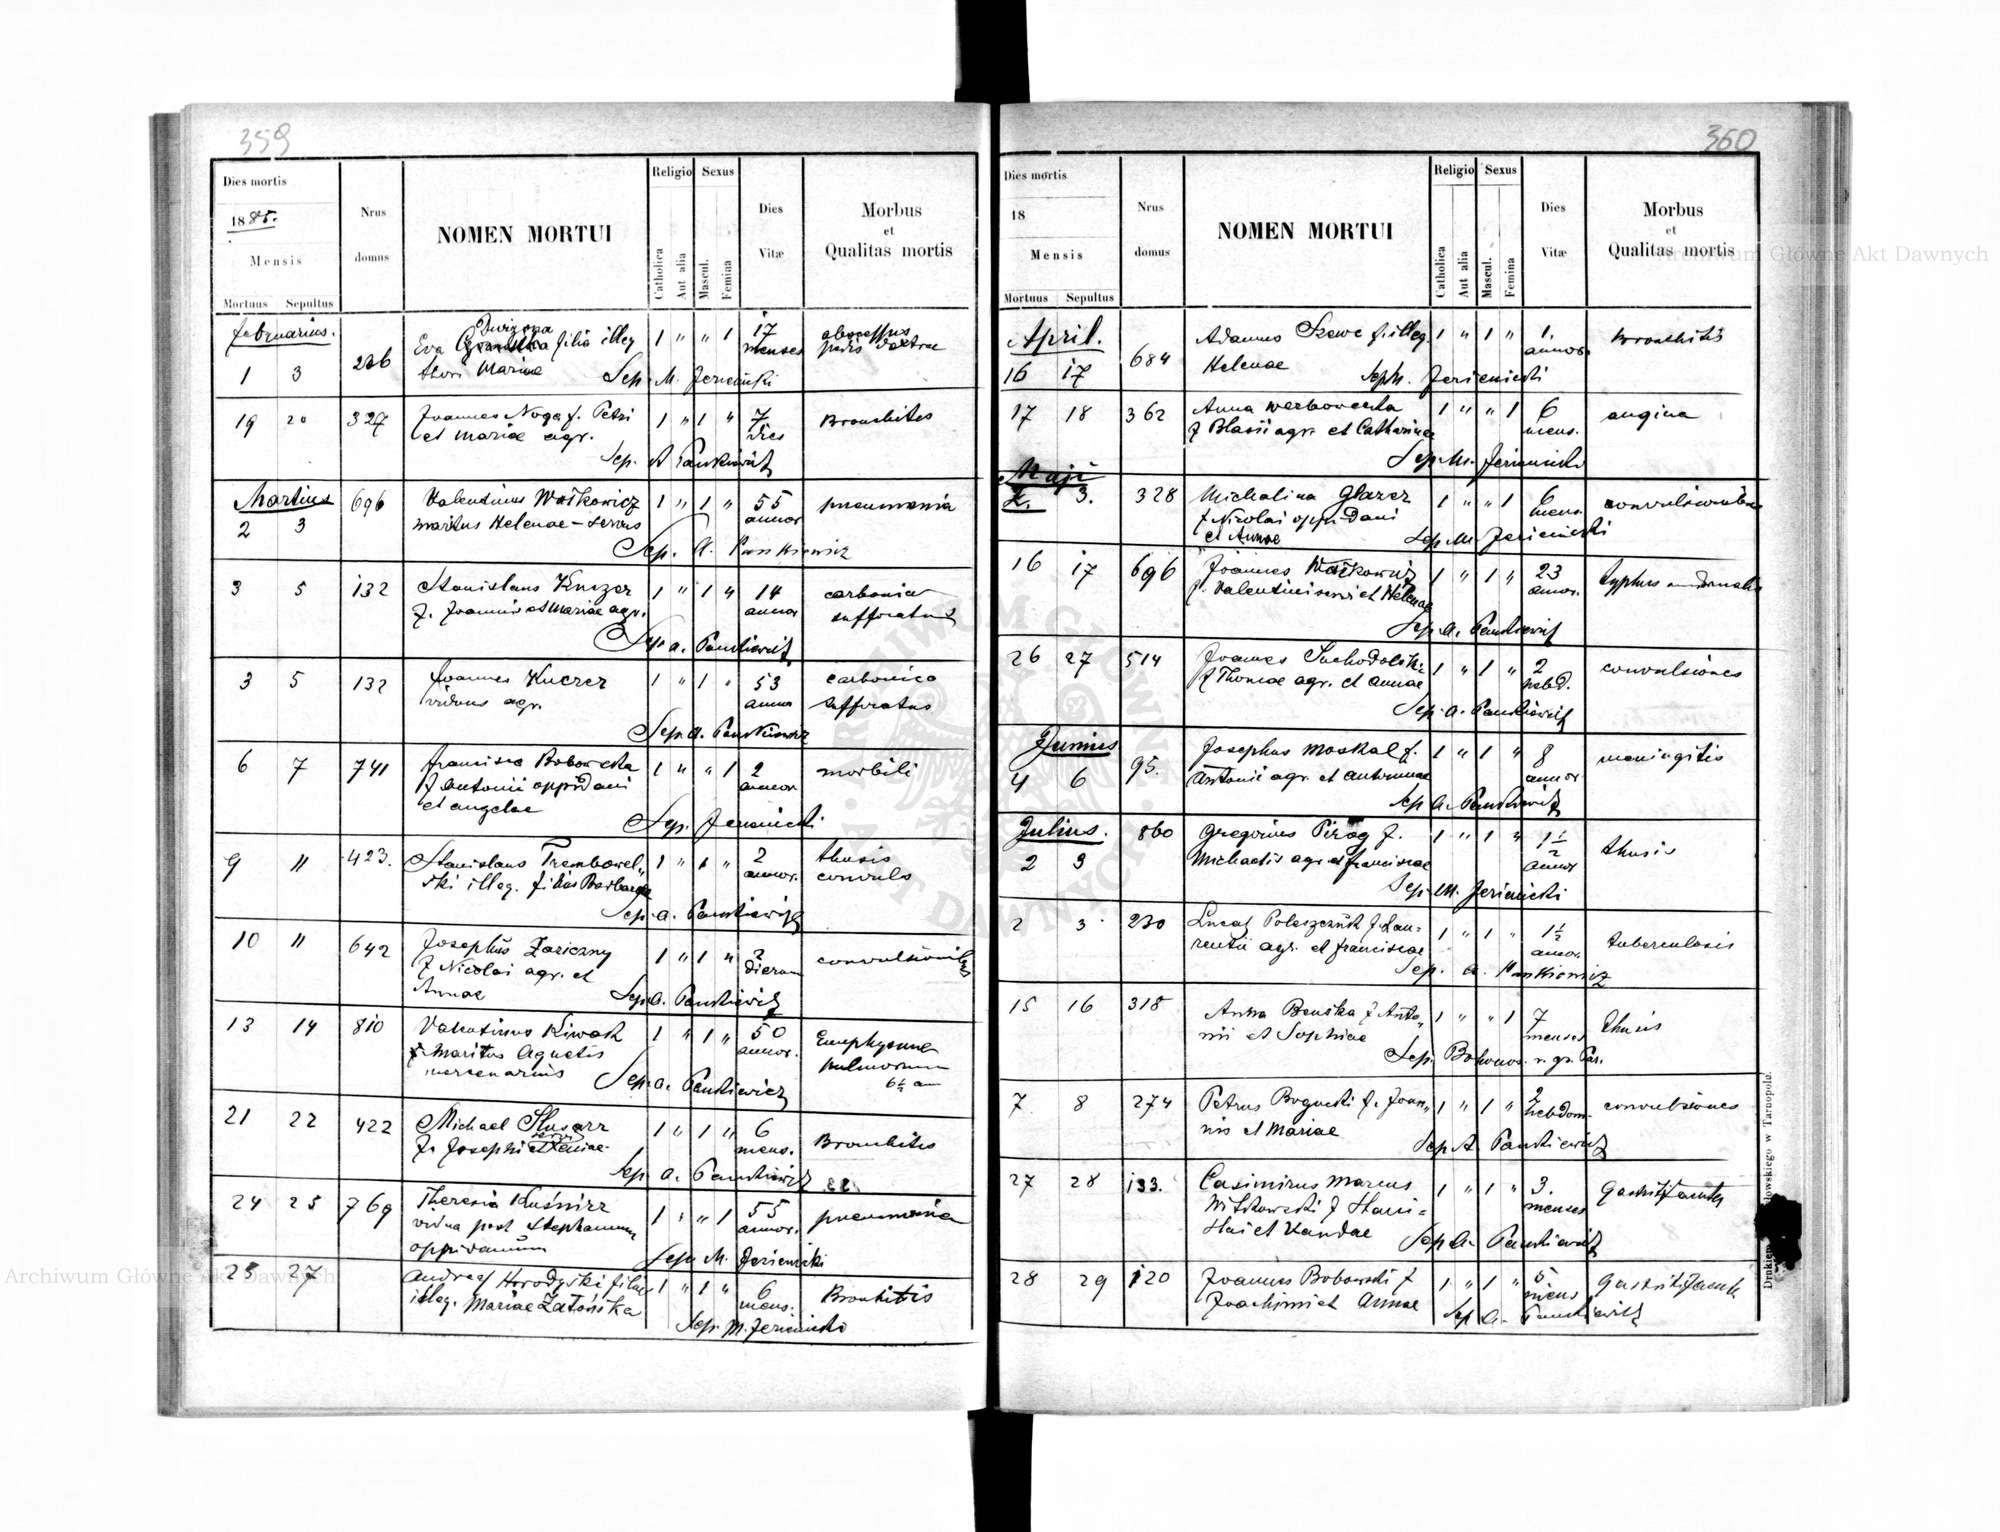 359
Dies mortis
1885.
Mensis
Mortuus Sepultus
Nrus
domus
NOMEN MORTUI
Religio
Catholica
Aut alia
Sexus
Mascul.
Femina
Dies
Vitæ
Morbus
et
Qualitas mortis
februarius.
1 3
Eva filia illeg
thori Mariae
1 " " 1
17
menses
abscessus
pedis dextrae
Sep. M. Jezienicki
19 20 327
Joannes Noga f. Petri
et Mariae agr.
1 " 1 "
7
dies
Bronchitis
Sep. A Pankiewicz
Martius
2 3
696
Valentinus Waśkowicz
maritus Helenae - servus
1 " 1 "
55
annor
pneumonia
Sep. A. Pankiewicz
3 5 132
Stanislaus Kuczer
f. Joannis et Mariae agr.
1 " 1 "
14
annor
carbonica
suffocatus
Sep. A. Pankiewicz
3 5 132
Joannes Kuczer
viduus agr.
1 " 1 "
53
annor
carbonica
suffocatus
Sep. A. Pankiewicz
6 7 741
Francisca Bobowska
f Antonii oppidani
et Angelae
1 " " 1
2
annor
morbili
Sep. Jezienicki
9 11 423.
Stanislaus Trembowel„
ski illeg. filius Barbarae
1 " 1 "
2
annor.
thusis
convuls
Sep. A. Pankiewicz
10 11 642
Josephus Zariczny
f Nicolai agr. et
Annae
1 " 1 "
2
dierum
Sep. A. Pankiewicz
13 14 810
Valentinus Kiwak
maritus Agnetis
mercenarius
1 " 1 "
50
annor.
Emphysema
pulmorum
Sep. A. Pankiewicz
21 22 422
Michael Slusarz
f. Josephi
1 " 1 "
6
mens.
Bronchitis
Sep. A. Pankiewicz
24 25 769
Theresia Kuśnirz
vidua post Stephanum
oppidanum
1 " " 1
55
annor.
pneumonia
Sep. M. Jezienicki
25 27
Andreas Horodyski filius
illeg. Mariae Zatońska
1 " 1 "
6
mens.
Bronchitis
Sep. M. Jezienicki
360
Dies mortis
18
Mensis
Mortuus Sepultus
Nrus
domus
NOMEN MORTUI
Religio
Catholica
Aut alia
Sexus
Mascul.
Femina
Dies
Vitæ
Morbus
et
Qualitas mortis
April.
16 17
684
Adamus Szewc f. illeg.
Helenae
1 " 1 "
1.
annor.
Bronchitis
Seph. Jezienicki
17 18 362
Anna Werbowecka
f Blasii agr. et Catharinae
1 " " 1
6
mens.
angina
Sep. M. Jezienicki
Maji
2. 3. 328
Michalina Glazer
f Nicolai oppidani
et Annae
1 " " 1
6
mens.
Sep. M. Jezienicki
16 17 696
Joannes Waśkowicz
f. Valentini servi et Helenae
1 " 1 "
23
annor.
typhus
Sep. A. Pankiewicz
26 27 514
Joannes Suchodolski
f Thomae agr. et Annae
1 " 1 "
2
hebd.
convulsiones
Sep. A. Pankiewicz
Junius
4 6
95.
Josephus Moskal f.
Antonii agr. et Antoninae
1 " 1 "
8
annor
meningitis
Sep A. Pankiewicz
Julius.
2 3
860
Gregorius Pirog f.
Michaelis agr. et Franciscae
1 " 1 "
1 1/2
annor
thusis
Sep. M. Jezienicki
2 3 230
Lucas Poleszczuk f. Lau-
rentii agr. et Franciscae
1 " 1 "
1 1/2
annor.
tuberculosis
Sep. A. Pankiewicz
15 16 318
Anna Benska f Anto„
nii et Sophiae
1 " " 1
7
menses
thusis
Sep. Bohonos. r. gr. Par.
7 8 274
Petrus Bogucki f. Joan„
nis et Mariae
1 " 1 "
2
hebdom.
convulsiones
Sep A Pankiewicz
27 28 133.
Casimirus Marcus
Witkowski f Stani-
slai et Vandae
1 " 1 "
3.
menses
Sep A. Pankiewicz
28 29 120
Joannes Bobowski f
Joachimi et Annae
1 " 1 "
5
mens
Sep A. Pankiewicz
Archiwum Główne Akt Dawnych
Archiwum Główne Akt Dawnych
ARCHIWUM GŁÓWNE AKT DAWNYCH